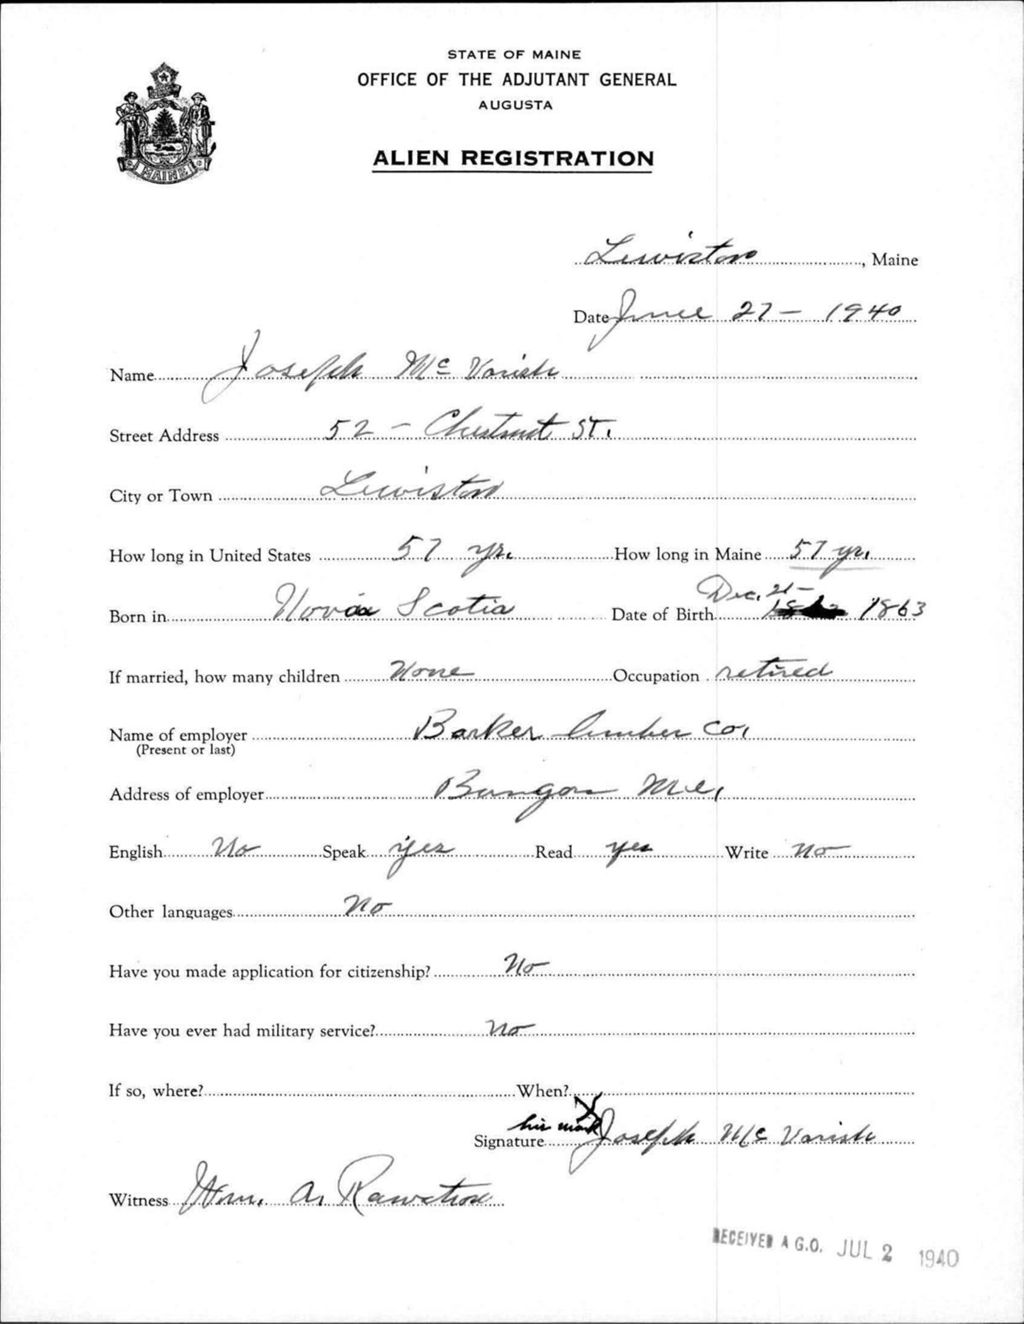 STATE OF MAINE
OFFICE OF THE ADJUTANT GENERAL
AUGUSTA
ALIEN REGISTRATION
MAINE
Lewiston, Maine
Date June 27 - 1940
Name Joseph Mc Varish
Street Address 52 - Chestnut St.
City or Town Lewiston
How long in United States 57 yr. How long in Maine 57 yr.
Born in Nova Scotia Date of Birth Dec. 21 - 1863
If married, how many children None Occupation retired
Name of employer Barker lumber Co,
(Present or last)
Address of employer Bangor Me,
English No Speak yes Read yes Write No
Other languages No
Have you made application for citizenship? No
Have you ever had military service? No
If so, where? When?
his mark X
Signature Joseph Mc Varish
Witness Wm. A. Rawstron
RECEIVED A.G.O. JUL 2 1940